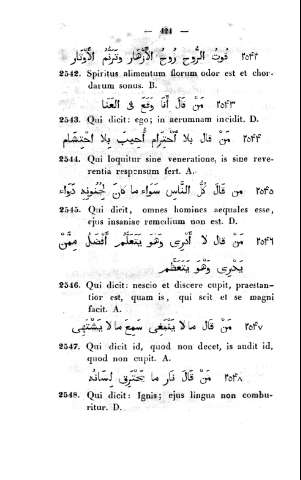 — 424 —
٢٥٤٢ قُوتُ الرُّوحِ رُوحُ الأَزْهَارِ وَتَرَنُّمُ الأَوْتَارِ
2542. Spiritus alimentum florum odor est et chor-
darum sonus. B.
٢٥٤٣ مَنْ قَالَ أَنَا وَقَعَ فِى العَنَا
2543. Qui dicit: ego; in aerumnam incidit. D.
٢٥٤٤ مَن قال بِلا ٱحْتِرام أُجِيبَ بِلا ٱحْتِشام
2544. Qui loquitur sine veneratione, is sine reve-
rentia responsum fert. A.
٢٥٤٥ من قال كُلُّ النَّاس سَوَاء ما كان لِجُنُونِهِ دَوَاء
2545. Qui dicit, omnes homines aequales esse,
ejus insaniae remedium non est. D.
٢٥٤٦ مَن قال لا أَدْرِى وَهُوَ يَتَعَلَّمُ أَفْضَلُ مِمَّنْ
يَدْرِى وَهُوَ يَتَعَظَّم
2546. Qui dicit: nescio et discere cupit, praestan-
tior est, quam is, qui scit et se magni
facit. A.
٢٥٤٧ مَنْ قال ما لا يَنْبَغِى سَمِعَ ما لا يَشْتَهِى
2547. Qui dicit id, quod non decet, is audit id,
quod non cupit. A.
٢٥٤٨ مَنْ قَالَ نَار ما يَحْتَرِق لِسَانُهُ
2548. Qui dicit: Ignis; ejus lingua non combu-
ritur. D.